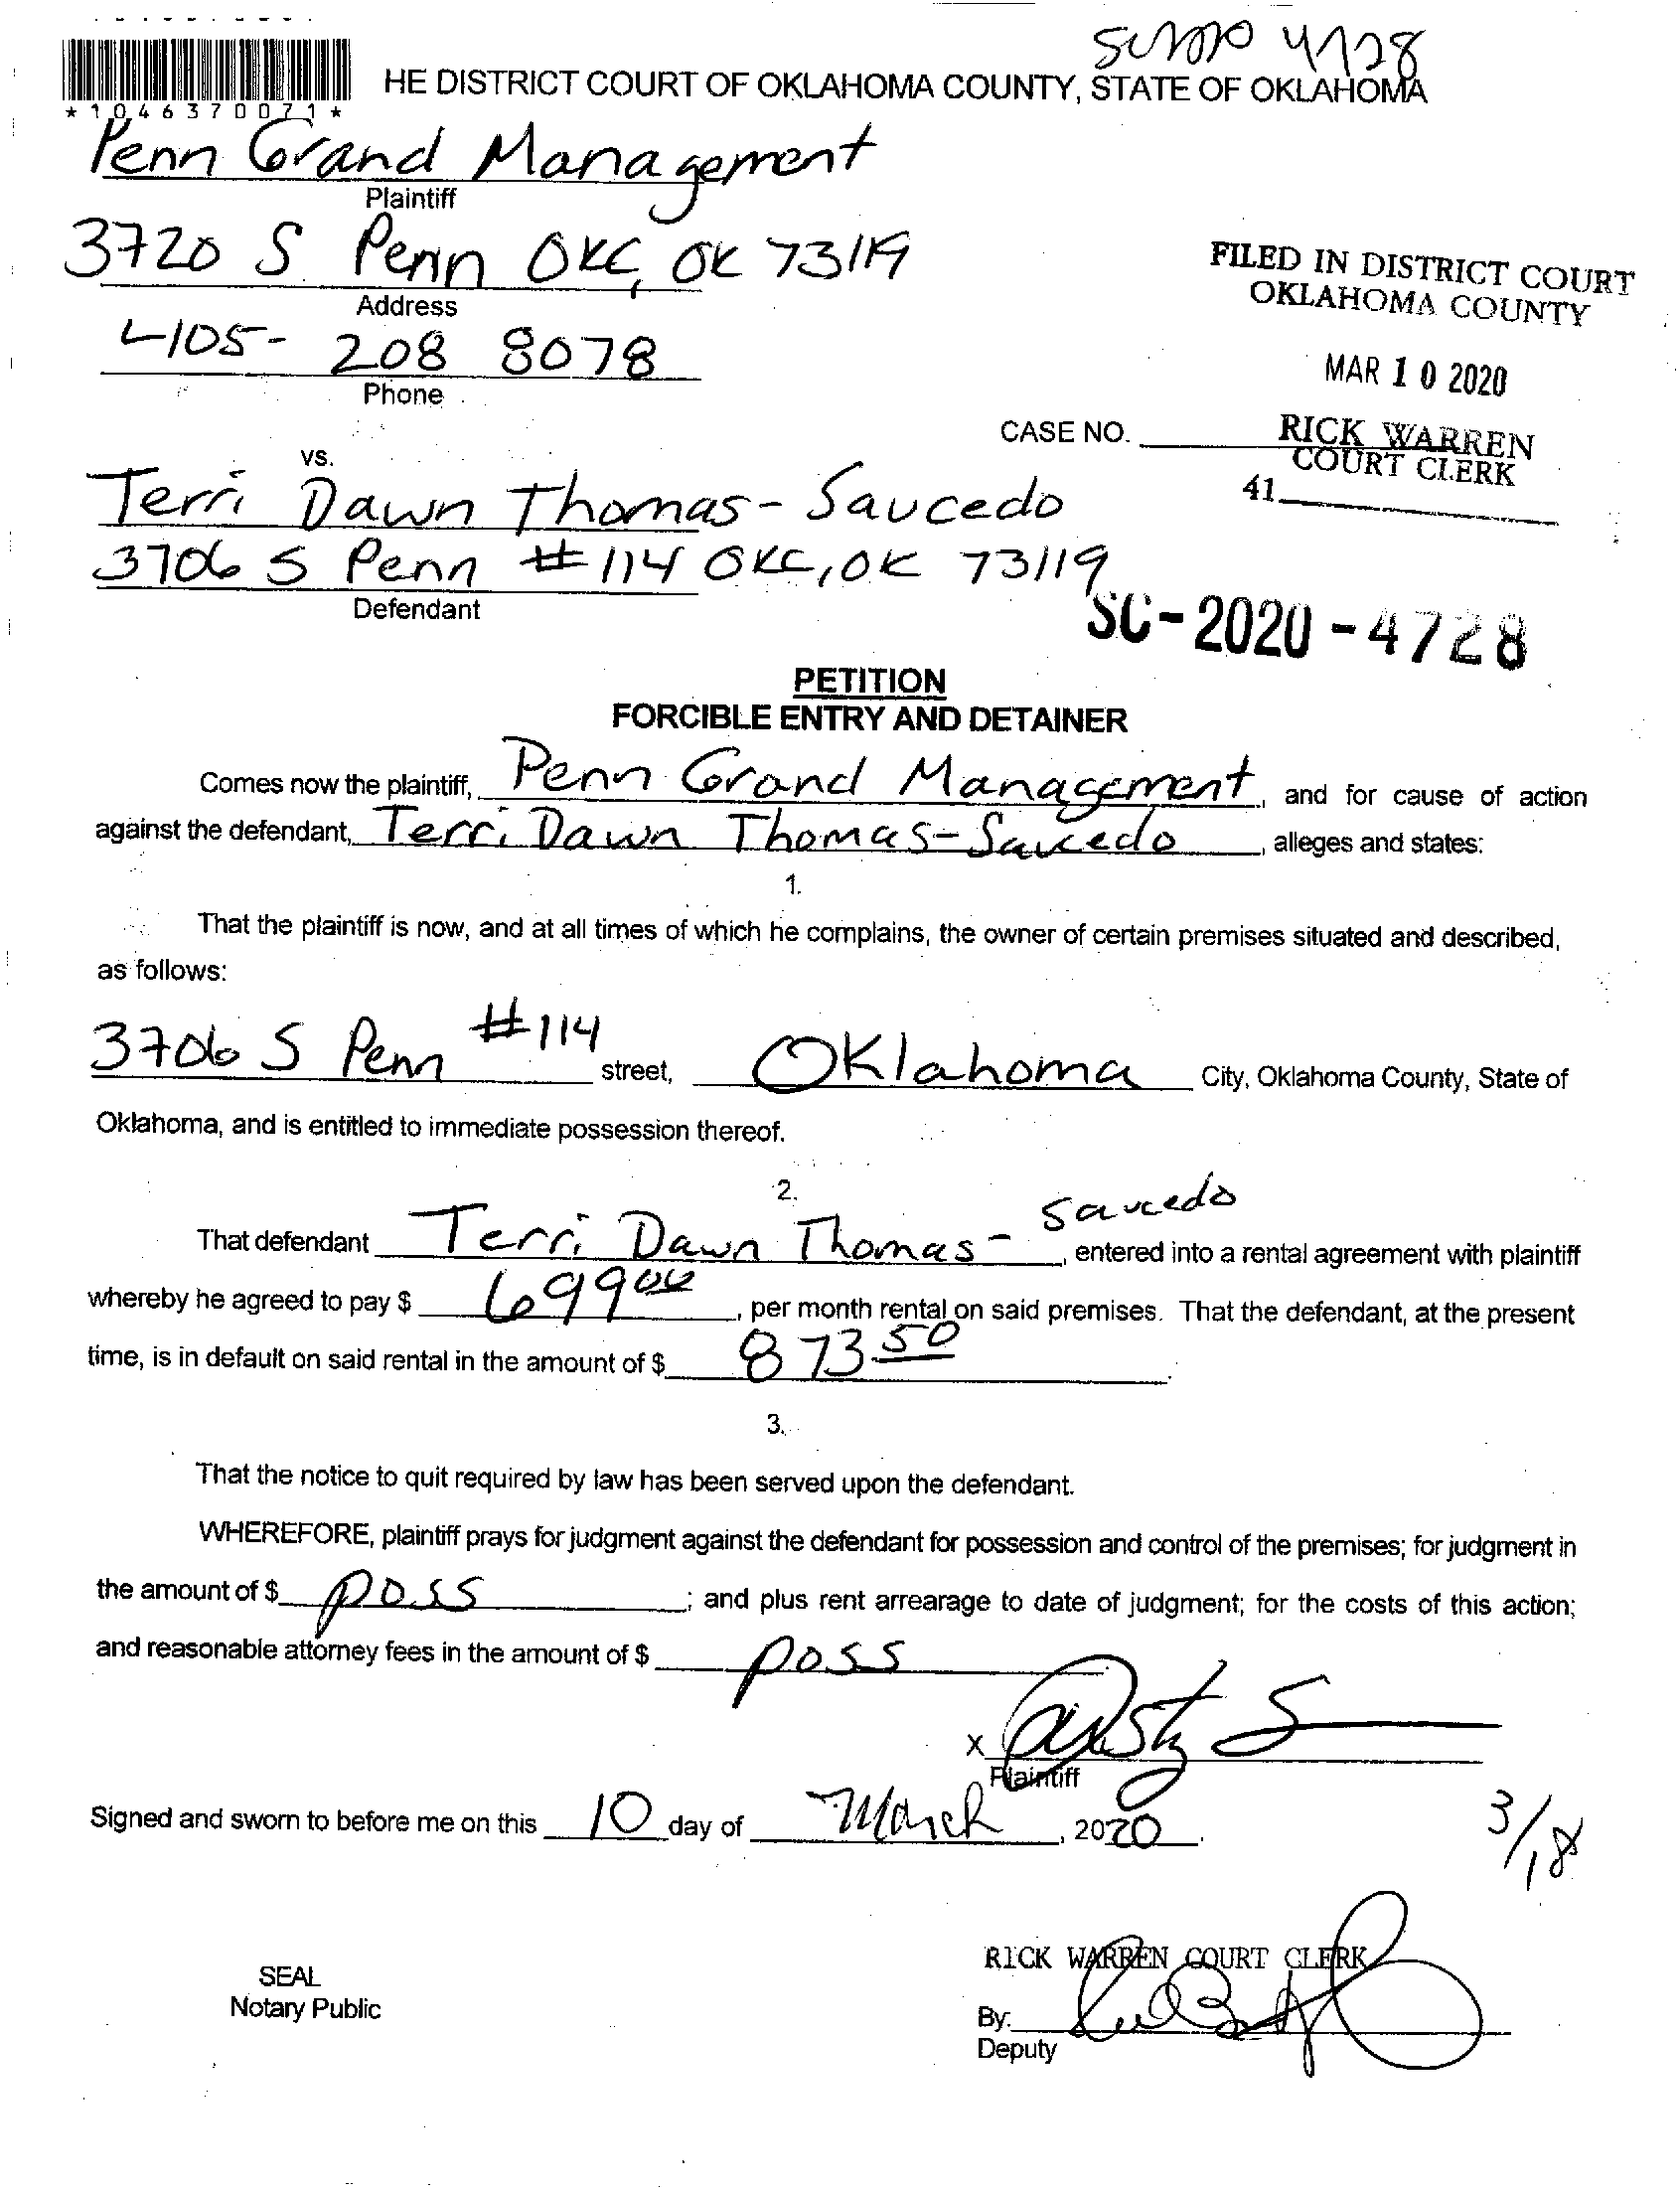 HE DISTRICT COURT OF OKLAHOMA COUNTY, STATE OF OKLAHOMA
*1046370071*
Penn Grand Management
Plaintiff
3720 S Penn OKC, OK 73119
Address
FILED IN DISTRICT COURT
OKLAHOMA COUNTY
405- 208 8078
Phone
MAR 10 2020
CASE NO.
RICK WARREN
COURT CLERK
41
vs.
Terri Dawn Thomas-Saucedo
3706 S Penn #114 OKC, OK 73119
Defendant
SC-2020-4728
PETITION
FORCIBLE ENTRY AND DETAINER
Comes now the plaintiff, Penn Grand Management, and for cause of action
against the defendant, Terri Dawn Thomas-Saucedo, alleges and states:
1.
That the plaintiff is now, and at all times of which he complains, the owner of certain premises situated and described,
as follows:
3706 S Penn #114 street, Oklahoma City, Oklahoma County, State of
Oklahoma, and is entitled to immediate possession thereof.
2.
That defendant Terri Dawn Thomas-Saucedo, entered into a rental agreement with plaintiff
whereby he agreed to pay $ 699 00, per month rental on said premises. That the defendant, at the present
time, is in default on said rental in the amount of $ 873 50.
3.
That the notice to quit required by law has been served upon the defendant.
WHEREFORE, plaintiff prays for judgment against the defendant for possession and control of the premises; for judgment in
the amount of $ poss; and plus rent arrearage to date of judgment; for the costs of this action;
and reasonable attorney fees in the amount of $ poss
X
Plaintiff
Signed and sworn to before me on this 10 day of March, 2020.
3/18
RICK WARREN COURT CLERK
SEAL
Notary Public
By:
Deputy